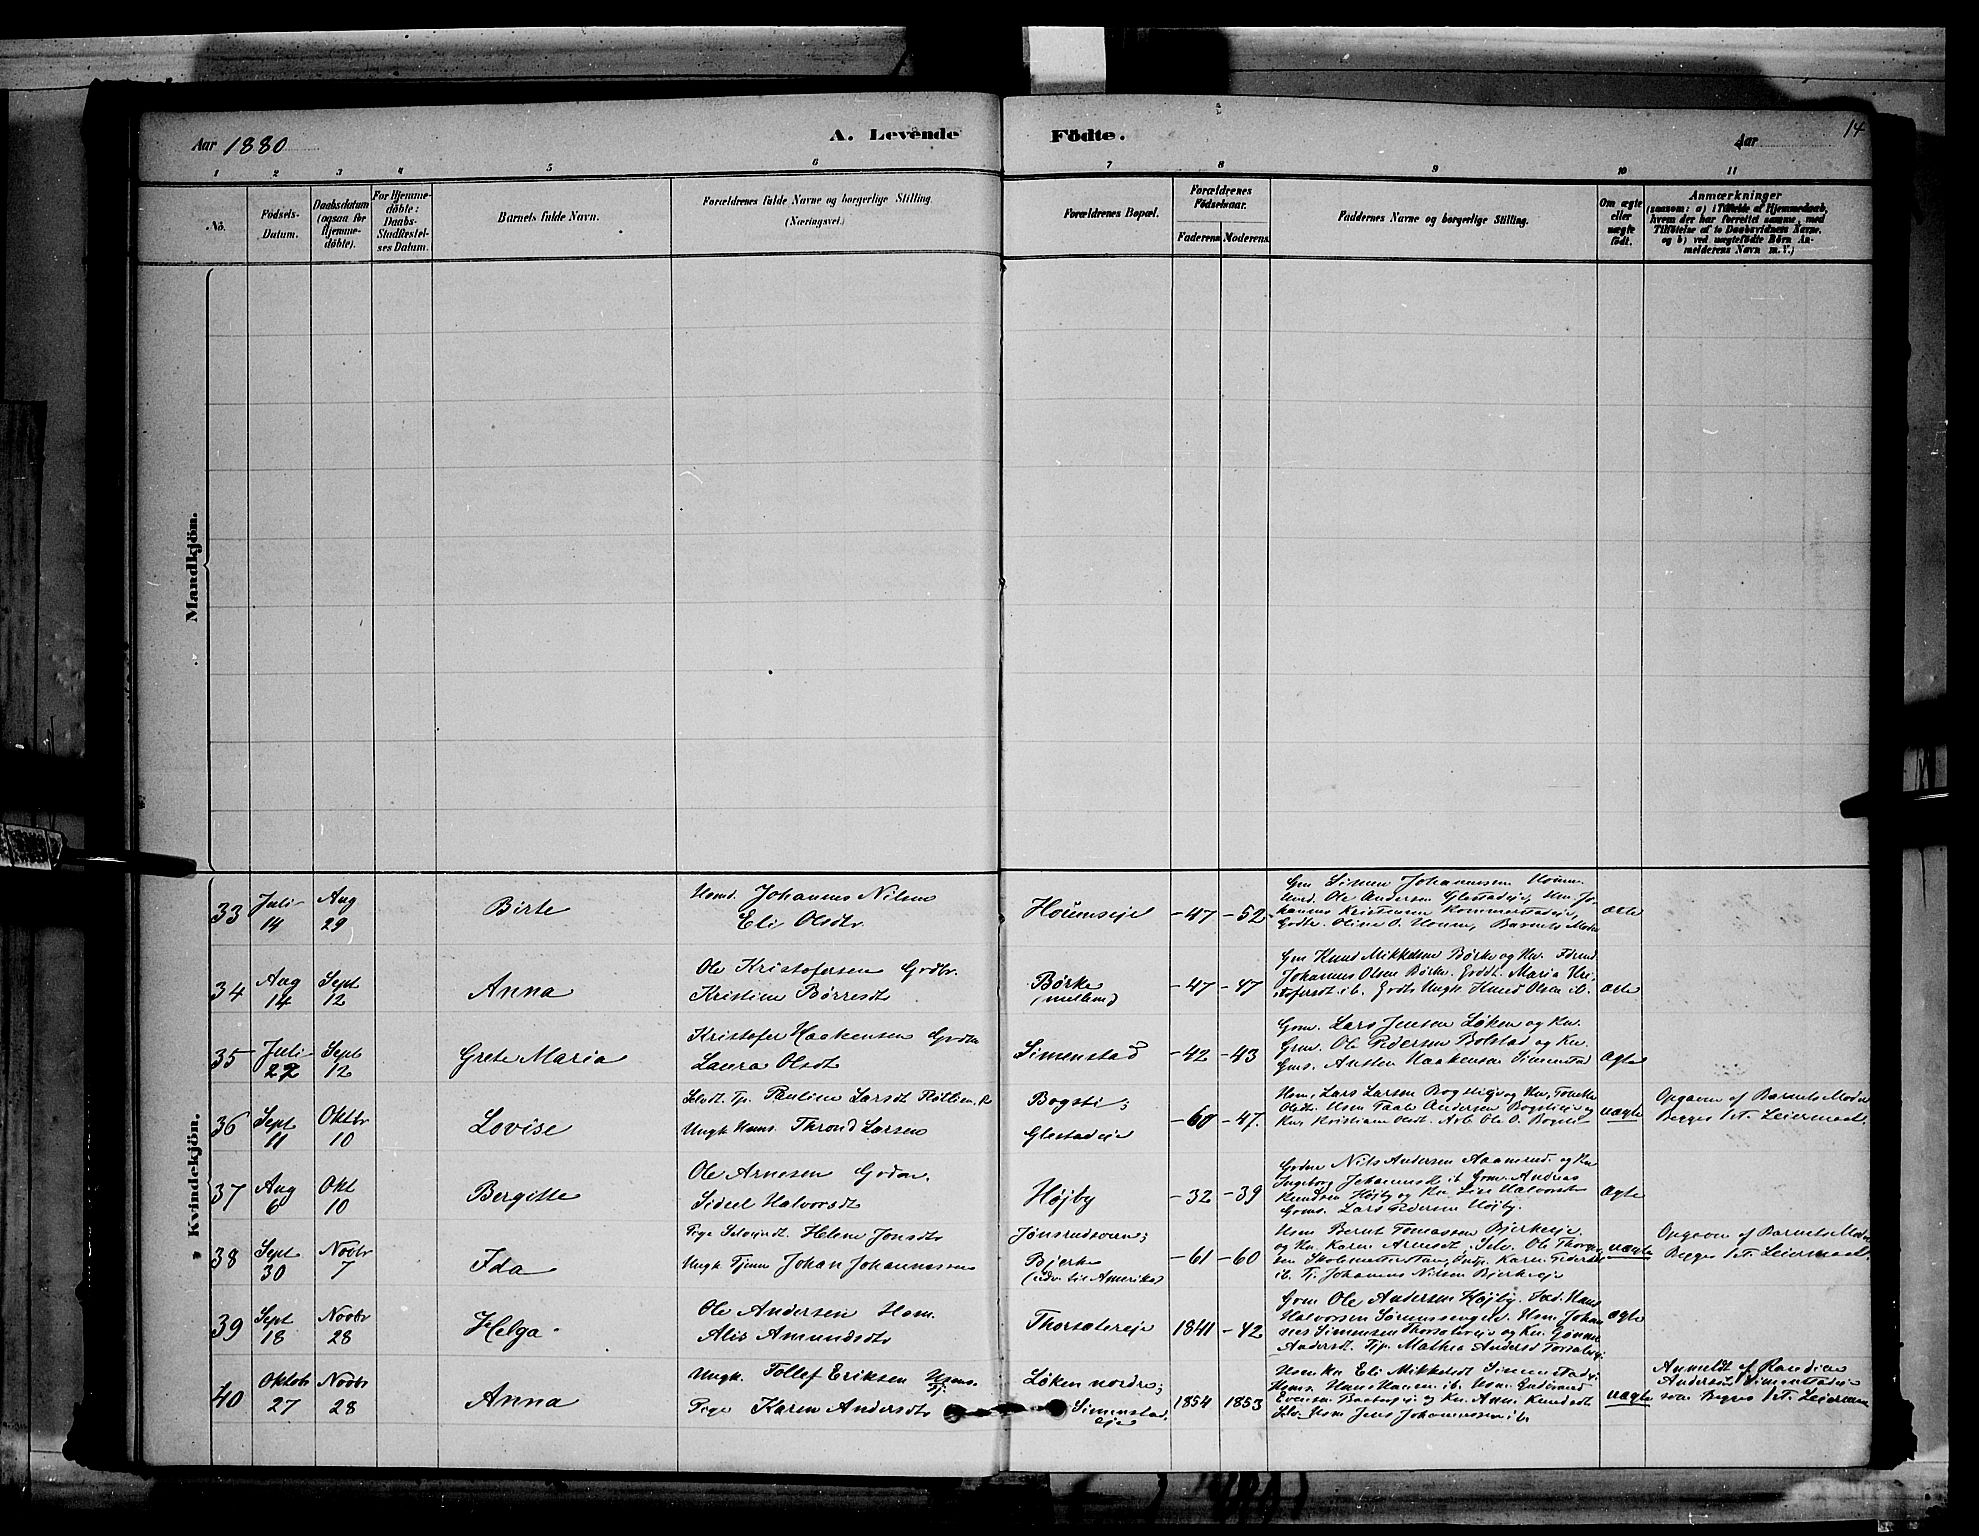 Aar 1880
A. Levende Födte.
Aar
14
1 2 3 4 5 6 7 8 9 10 11
No.
Födsels-
Datum.
Daabsdatum
(ogsaa for
Hjemme-
döbte).
For Hjemme-
döbte:
Daabs-
Stadfæstel-
ses Datum.
Barnets fulde Navn.
Forældrenes fulde Navne og borgerlige Stilling.
(Næringsvei.)
Forældrenes Bopæl.
Forældrenes
Födselsaar.
Faderens Moderens
Faddernes Navne og borgerlige Stilling.
Om ægte
eller
uægte
födt.
Anmærkninger
(saasom: a) i Tilfælde af Hjemmedaab,
hvem der har forrettet samme, med
Tilföielse af to Daabsvidners Navne,
og b) ved uægtefödte Börn An-
melderens Navn m. V.)
Mandkjön.
Kvindekjön.
33
Juli
14
Aug
29
Birte
Husmd. Johannes Nilsen
Eli Olsdtr.
Hounseje
-47 -52
Gm Simen Johannesen Houm
Ole Andersen Glestadeje, Hsm Jo-
hannes Kristiansen Kommerstadeje,
Grdtr. Oline O. Houm, Barnets Moder
ægte
34
Aug
14
Sept
12
Anna
Ole Kristofersen Grdbr.
Kristine Börresdt
Børke
mellem
-47 -47
Gm Knud Mikkelsen Børke og Kn.
Johannes Olsen Børke. Grddt. Maria Kri-
stofersdt ib. Grdbr Ungk. Knud Olsen ib.
ægte
35
Juli
27
Sept
12
Grete Maria
Kristofer Haakensen Grdbr
Laura Olsdt
Simenstad
-42 -43
Grm. Lars Jensen Løken og Kn.
Grm. Ole Pedersen Bolstad og Kn.
Gms. Austen Haakensen Simenstad
ægte
36
Sept
11
Oktbr
10
Lovise
Selvst. Tj. Pauline Larsdt
Ungk Hsms. Thrond Larsen
Bogsti;
Glestadeje
-60 -47.
Hsm. Lars Larsen Bogstieje og Kn.
Olsdt. Hsm Andersen Bogstieje og
Kn. Kristiane Olsdt. Arb. Ole O. Bogsti
uægte
Opgaven af Barnets Moder
Begges 1st. Leiermaal.
37
Aug
6
Okt
10
Bergitte
Ole Arnesen Grdm.
Sidsel Halvorsdt
Højby
-32 -39
Grdm Nils Andersen Aaamrud og Kn
Ingeborg Johannesdt ib Grm. Andreas
Knudsen Højby og Kn. Lise Halvorsdt
Grms. Lars Pedersen Højby.
ægte
38
Sept
30
Novbr
7
Ida
Pige Selvejndt. Helene Jonsdt
Ungk Tjener Johan Johannessen
Jønsrudsveen;
Bjerke
(udv. til Amerika)
-61 -60
Hsm Bernt Tomassen Bjerkeeje
og Kn. Karen Arnesdt. Selv. Ole Thor
ib. Tj. Johannes Nilsen Bjerkeeje
uægte
Opgaven af Barnets Moder
Begges 1st. Leiermaal.
39
Sept
18
Novbr
28
Helga
Ole Andersen Hsm.
Alis Amundsdtr
Thorsætereje
1841 -42
Grm Ole Andersen Højby. Hans
Halvorsen Sørumsengen. Hsm. Johan
nes Simensen Thorsætereje og Kn.
Andersdt. Tjp. Mathea Andersdt
ægte
40
Oktobr
27
Novbr
28
Anna
Ungk. Tollef Eriksen Hsms.
Tj.
Pige Karen Andersdtr
Løken nordre;
Simenstad
eje
1854 1853
Hsm Kn Eli Mikkelsdt Simenstadeje
Evensen og Kn. Anne Knudsdt
Hsm Jens Johannessen ib.
uægte
Anmeldt af
Andersdt Simenstadeje
som Begges 1st. Leiermaal